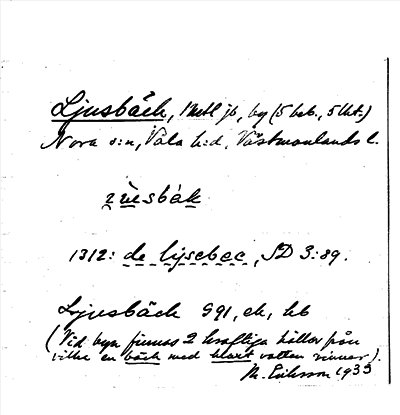 Ljusbäck, 1 mtl jb, by (5 beb., 5 lht.)
Nora s:n, Våla h:d, Västmanlands l.
1312: de lysebec, SD 3:89.
Ljusbäck G91, ek, kb
(Vid byn finnas 2 kraftiga källor från
vilka en bäck med klart vatten rinner).
M. Eriksson 1935